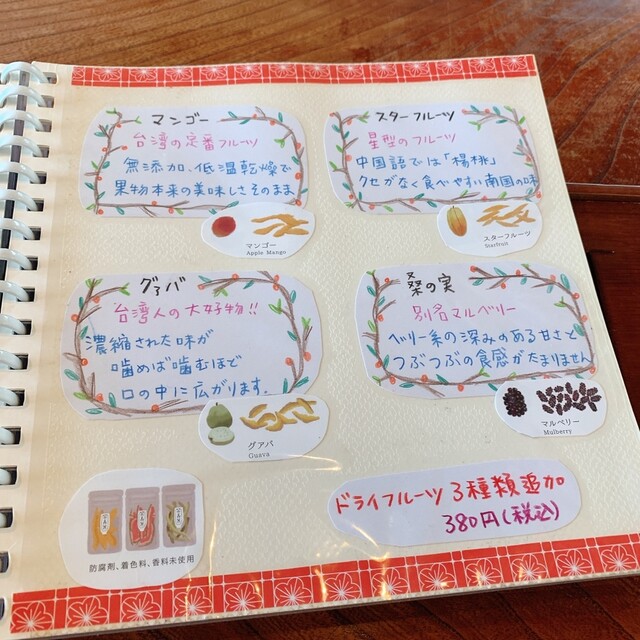 マンゴー
台湾の定番フルーツ
無添加、低温乾燥で
果物本来の美味しさそのまま
マンゴー
Apple Mango
スターフルーツ
星型のフルーツ
中国語では「楊桃」
クセがなく食べやすい南国の味
スターフルーツ
Starfruit
グァバ
台湾人の大好物!!
濃縮された味が
噛めば噛むほど
口の中に広がります。
グアバ
Guava
桑の実
別名マルベリー
ベリー系の深みのある甘さと
つぶつぶの食感がたまりません
マルベリー
Mulberry
防腐剤、着色料、香料未使用
ドライフルーツ 3種類追加
380円(税込)